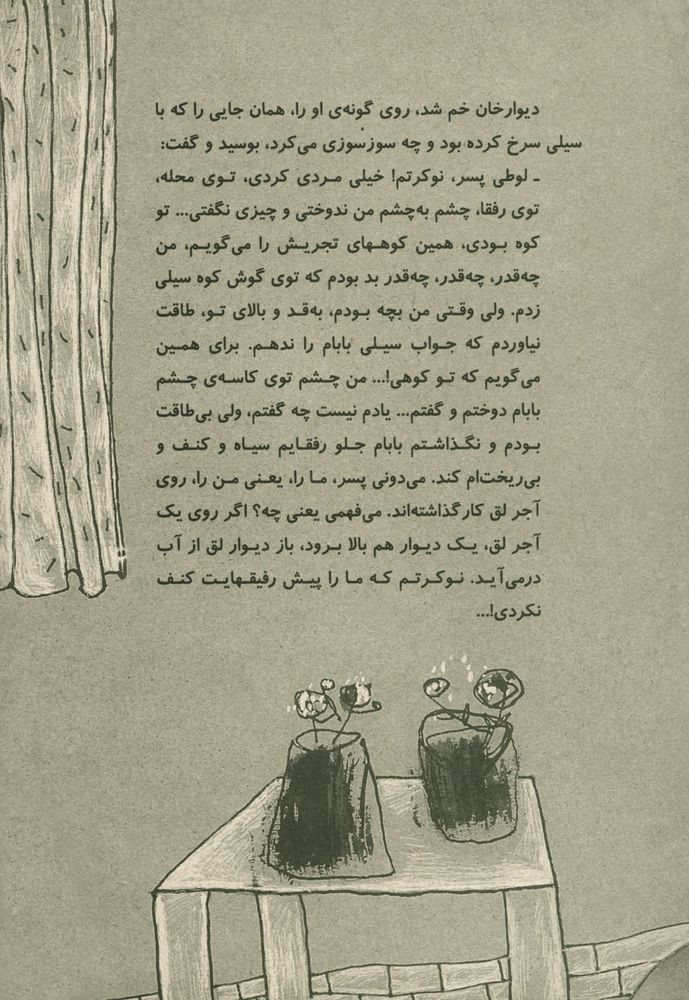 دیوارخان خم شد، روی گونه‌ی او را، همان جایی را که با
سیلی سرخ کرده بود و چه سوزسوزی می‌کرد، بوسید و گفت:
ـ لوطی پسر، نوکرتم! خیلی مـردی کردی، تـوی محله،
توی رفقا، چشم به‌چشم من ندوختی و چیزی نگفتی... تو
کوه بـودی، همین کوهـهای تجریـش را می‌گویـم، من
چه‌قدر، چه‌قدر، چه‌قدر بد بودم که توی گوش کوه سیلی
زدم. ولی وقـتی من بچه بـودم، به‌قـد و بالای تـو، طاقت
نیاوردم که جـواب سیـلی بابام را ندهـم. برای همین
می‌گویم که تـو کوهی!... من چـشم توی کاسه‌ی چـشم
بابام دوختم و گفتم... یادم نیست چه گفتم، ولی بی‌طاقت
بـودم و نگـذاشـتم بابام جـلو رفقـایم سیـاه و کـنف و
بی‌ریخت‌ام کند. می‌دونی پسر، مـا را، یعـنی مـن را، روی
آجر لق کارگذاشته‌اند. می‌فهمی یعنی چه؟ اگر روی یک
آجر لق، یـک دیـوار هم بالا بـرود، باز دیـوار لق از آب
درمی‌آیـد. نـوکـرتـم کـه مـا را پیـش رفیقـهایـت کنـف
نکردی!...